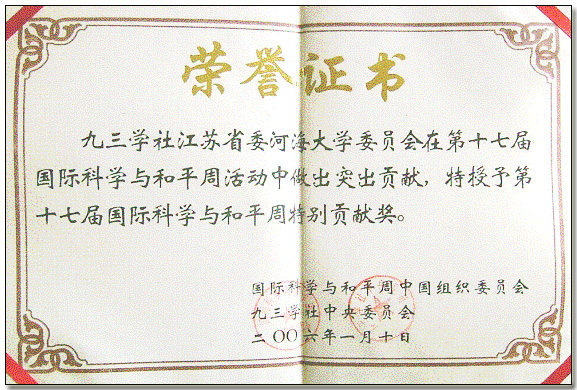 荣誉证书
九三学社江苏省委河海大学委员会在第十七届
国际科学与和平周活动中做出突出贡献，特授予第
十七届国际科学与和平周特别贡献奖。
国际科学与和平周中国组织委员会
九三学社中央委员会
二〇〇六年一月十日